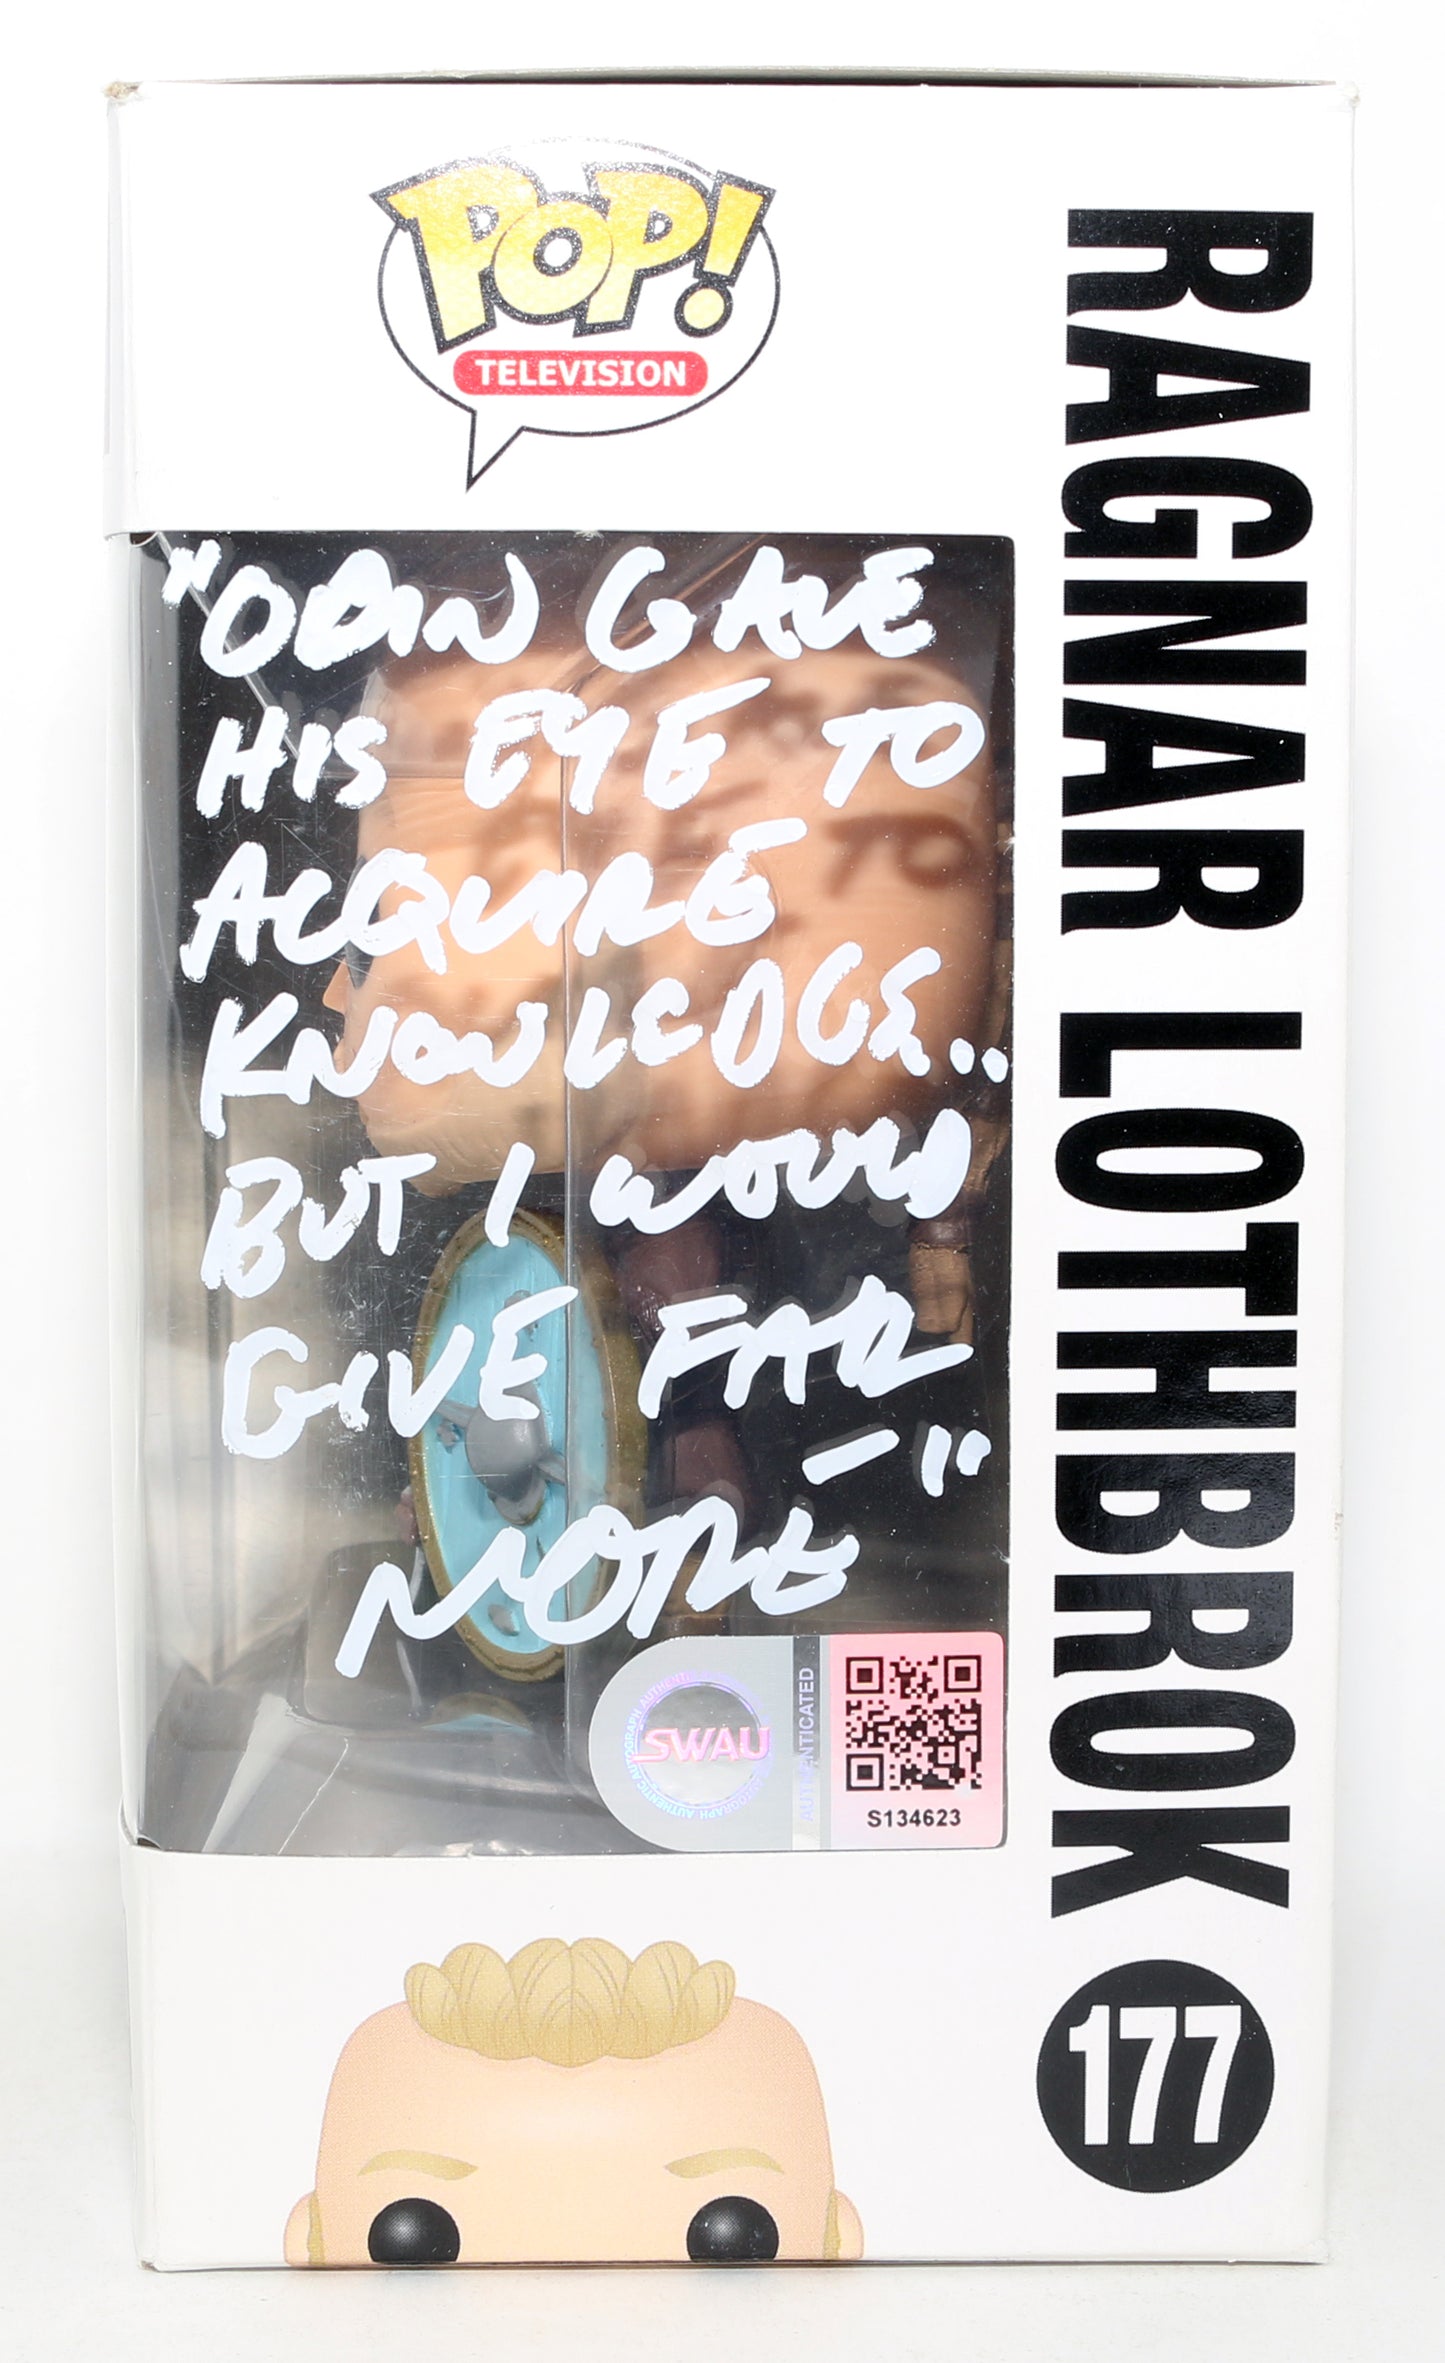 POP!
TELEVISION
"ODIN GAVE
HIS EYE TO
ACQUIRE
KNOWLEDGE..
BUT I WOULD
GIVE FAR
— "
MORE
SWAU
AUTHENTICATED
S134623
RAGNAR LOTHBROK
177